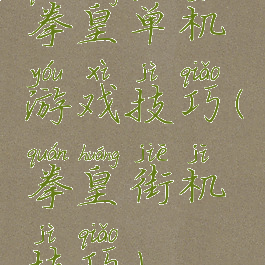 拳皇单机
yóu xì jì qiǎo
游戏技巧(
quán huáng jiē jī
拳皇街机
jì qiǎo
技巧)